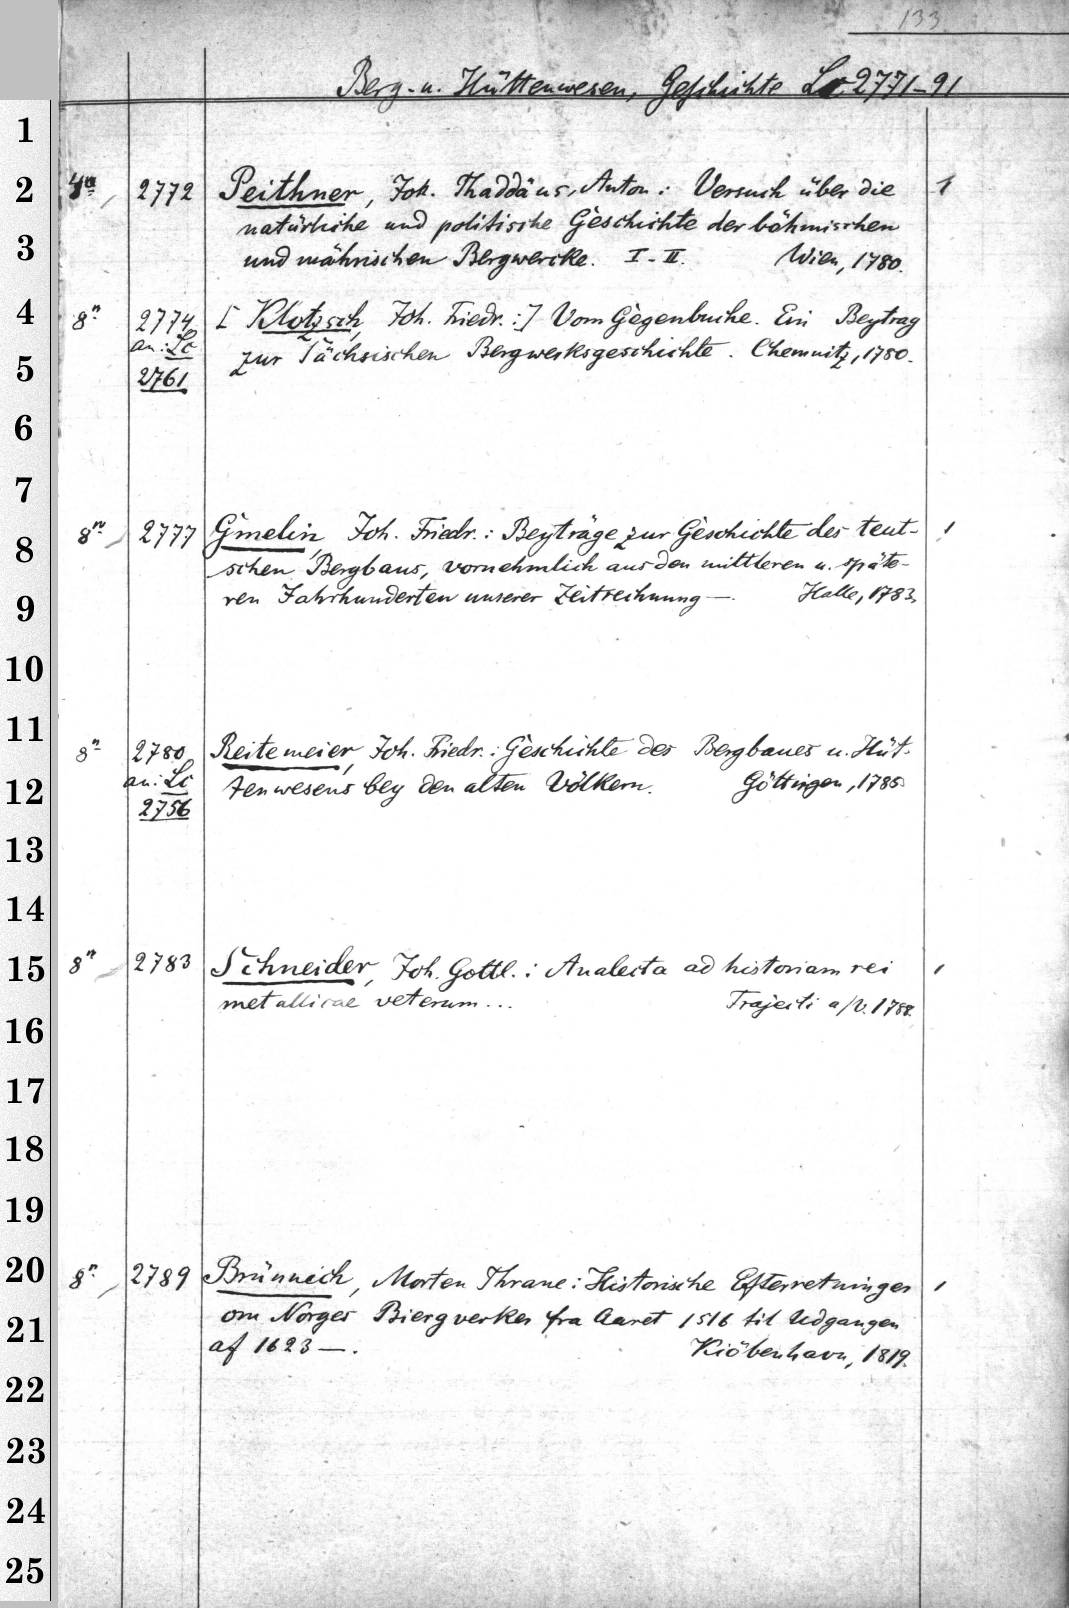 133
Berg- u. Hüttenwesen, Geschichte Lc 2771-91
1
2
3
4
5
6
7
8
9
10
11
12
13
14
15
16
17
18
19
20
21
22
23
24
25
4º 2772 Peithner, Joh. Thaddäus, Anton: Versuch über die 1
natürliche und politische Geschichte der böhmischen
und mährischen Bergwercke. I-II. Wien, 1780.
8º 2774 [Klotzsch, Joh. Friedr.:] Vom Gegenbuche. Ein Beytrag
an: Lc zur Sächsischen Bergwerksgeschichte. Chemnitz, 1780.
2761
8º 2777 Gmelin, Joh. Friedr.: Beyträge zur Geschichte des teut- 1
schen Bergbaus, vornehmlich aus den mittleren u. späte-
ren Jahrhunderten unserer Zeitrechnung —. Halle, 1783.
8º 2780 Reitemeier, Joh. Friedr.: Geschichte des Bergbaues u. Hüt-
an: Lc tenwesens bey den alten Völkern. Göttingen, 1785.
2756
8º 2783 Schneider, Joh. Gottl.: Analecta ad historiam rei 1
metallicae veterum... Trajecti a/V. 1788.
8º 2789 Brünnich, Morten Thrane: Historische Efterretninger 1
om Norges Biergverker fra Aaret 1516 til Udgangen
af 1623 —. Kiöbenhavn, 1819.